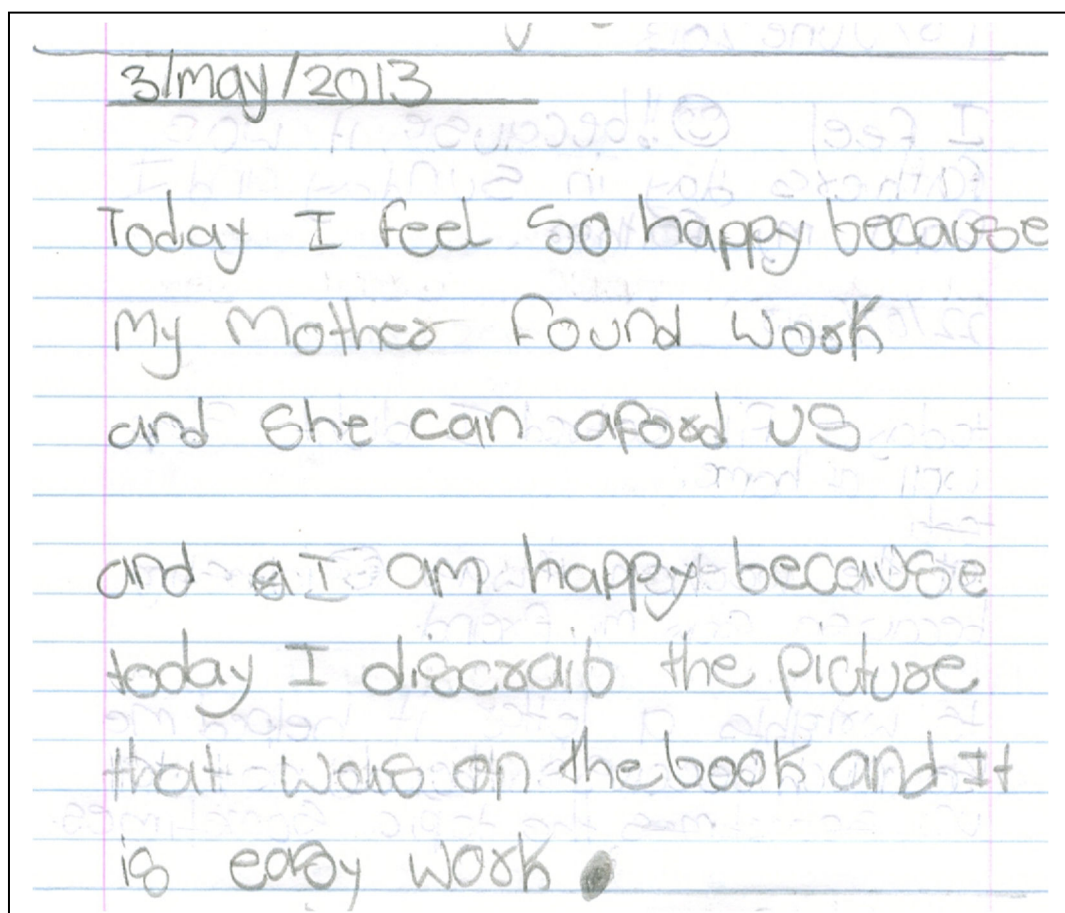 3/may/2013
Today I feel so happy because
my Mother found work
and she can aford us
and I am happy because
today I discraib the picture
that was on the book and It
is easy work.